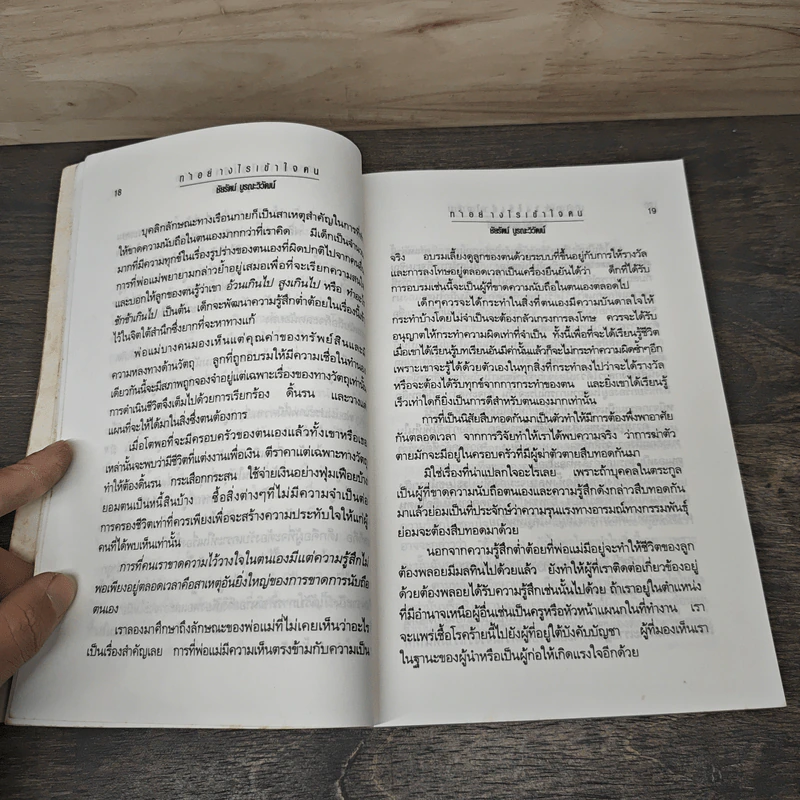 18
ทำอย่างไรเข้าใจคน
ชัยรัตน์ บูรณะวิวัฒน์
บุคลิกลักษณะทางเรือนกายก็เป็นสาเหตุสำคัญในการที่
ให้ขาดความนับถือในตนเองมากกว่าที่เราคิด มีเด็กเป็น
มากที่มีความทุกข์ในเรื่องรูปร่างของตนเองที่ผิดปกติไปจาก
การที่พ่อแม่พยายามกล่าวย้ำอยู่เสมอเพื่อที่จะเรียกความ
และบอกให้ลูกของตนรู้ว่าเขา อ้วนเกินไป สูงเกินไป หรือ
ชักช้าเกินไป เป็นต้น เด็กจะพัฒนาความรู้สึกต่ำต้อยในเรื่องนี้
ไว้ในจิตใต้สำนึกซึ่งยากที่จะหาทางแก้
พ่อแม่บางคนมองเห็นแต่คุณค่าของทรัพย์สินและมี
ความหลงทางด้านวัตถุ ลูกที่ถูกอบรมให้มีความเชื่อในทำนอง
เดียวกันนี้จะมีสภาพถูกจองจำอยู่แต่เฉพาะเรื่องของทางวัตถุเท่านั้น
การดำเนินชีวิตจึงเต็มไปด้วยการเรียกร้อง ดิ้นรน และวาง
แผนที่จะให้ได้มาในสิ่งซึ่งตนต้องการ
เมื่อโตพอที่จะมีครอบครัวของตนเองแล้วทั้งเขาหรือเธอ
เหล่านั้นจะพบว่ามีชีวิตที่แต่งงานเพื่อเงิน ตีราคาแต่เฉพาะทางวัตถุ
ทำให้ต้องดิ้นรน กระเสือกกระสน ใช้จ่ายเงินอย่างฟุ่มเฟือยบ้าง
ยอมตนเป็นหนี้สินบ้าง ซื้อสิ่งต่างๆที่ไม่มีความจำเป็นต่อ
การครองชีวิตเท่าที่ควรเพียงเพื่อจะสร้างความประทับใจให้แก่ผู้
คนที่ได้พบเห็นเท่านั้น
การที่คนเราขาดความไว้วางใจในตนเองมีแต่ความรู้สึกไม่
พอเพียงอยู่ตลอดเวลาคือสาเหตุอันยิ่งใหญ่ของการขาดการนับถือ
ตนเอง
เราลองมาศึกษาถึงลักษณะของพ่อแม่ที่ไม่เคยเห็นว่าอะไร
เป็นเรื่องสำคัญเลย การที่พ่อแม่มีความเห็นตรงข้ามกับความเป็น
ทำอย่างไรเข้าใจคน
19
ชัยรัตน์ บูรณะวิวัฒน์
จริง อบรมเลี้ยงดูลูกของตนด้วยระบบที่ขึ้นอยู่กับการให้รางวัล
และการลงโทษอยู่ตลอดเวลาเป็นเครื่องยืนยันได้ว่า เด็กที่ได้รับ
การอบรมเช่นนี้จะเป็นผู้ที่ขาดความนับถือในตนเองตลอดไป
เด็กๆควรจะได้กระทำในสิ่งที่ตนเองมีความบันดาลใจให้
กระทำบ้างโดยไม่จำเป็นจะต้องกลัวเกรงการลงโทษ ควรจะได้รับ
อนุญาตให้กระทำความผิดเท่าที่จำเป็น ทั้งนี้เพื่อที่จะได้เรียนรู้ชีวิต
เมื่อเขาได้เรียนรู้บทเรียนอันมีค่านั้นแล้วก็จะไม่กระทำความผิดซ้ำๆอีก
เพราะเขาจะรู้ได้ด้วยตัวเองในทุกสิ่งที่กระทำลงไปว่าจะได้รางวัล
หรือจะต้องได้รับทุกข์จากการกระทำของตน และยิ่งเขาได้เรียนรู้
เร็วเท่าใดก็ยิ่งเป็นการดีสำหรับตนเองมากเท่านั้น
การที่เป็นนิสัยสืบทอดกันมาเป็นตัวทำให้มีการต้องพึ่งพาอาศัย
กันตลอดเวลา จากการวิจัยทำให้เราได้พบความจริง ว่าการฆ่าตัว
ตายมักจะมีอยู่ในครอบครัวที่มีผู้ฆ่าตัวตายสืบทอดกันมา
มิใช่เรื่องที่น่าแปลกใจอะไรเลย เพราะถ้าบุคคลในตระกูล
เป็นผู้ที่ขาดความนับถือตนเองและความรู้สึกดังกล่าวสืบทอดกัน
มาแล้วย่อมเป็นที่ประจักษ์ว่าความรุนแรงทางอารมณ์ทางกรรมพันธุ์
ย่อมจะต้องสืบทอดมาด้วย
นอกจากความรู้สึกต่ำต้อยที่พ่อแม่มีอยู่จะทำให้ชีวิตของลูก
ต้องพลอยมีมลทินไปด้วยแล้ว ยังทำให้ผู้ที่เราติดต่อเกี่ยวข้องอยู่
ด้วยต้องพลอยได้รับความรู้สึกเช่นนั้นไปด้วย ถ้าเราอยู่ในตำแหน่ง
ที่มีอำนาจเหนือผู้อื่นเช่นเป็นครูหรือหัวหน้าแผนกในที่ทำงาน เรา
จะแพร่เชื้อโรคร้ายนี้ไปยังผู้ที่อยู่ใต้บังคับบัญชา ผู้ที่มองเห็นเรา
ในฐานะของผู้นำหรือเป็นผู้ก่อให้เกิดแรงใจอีกด้วย